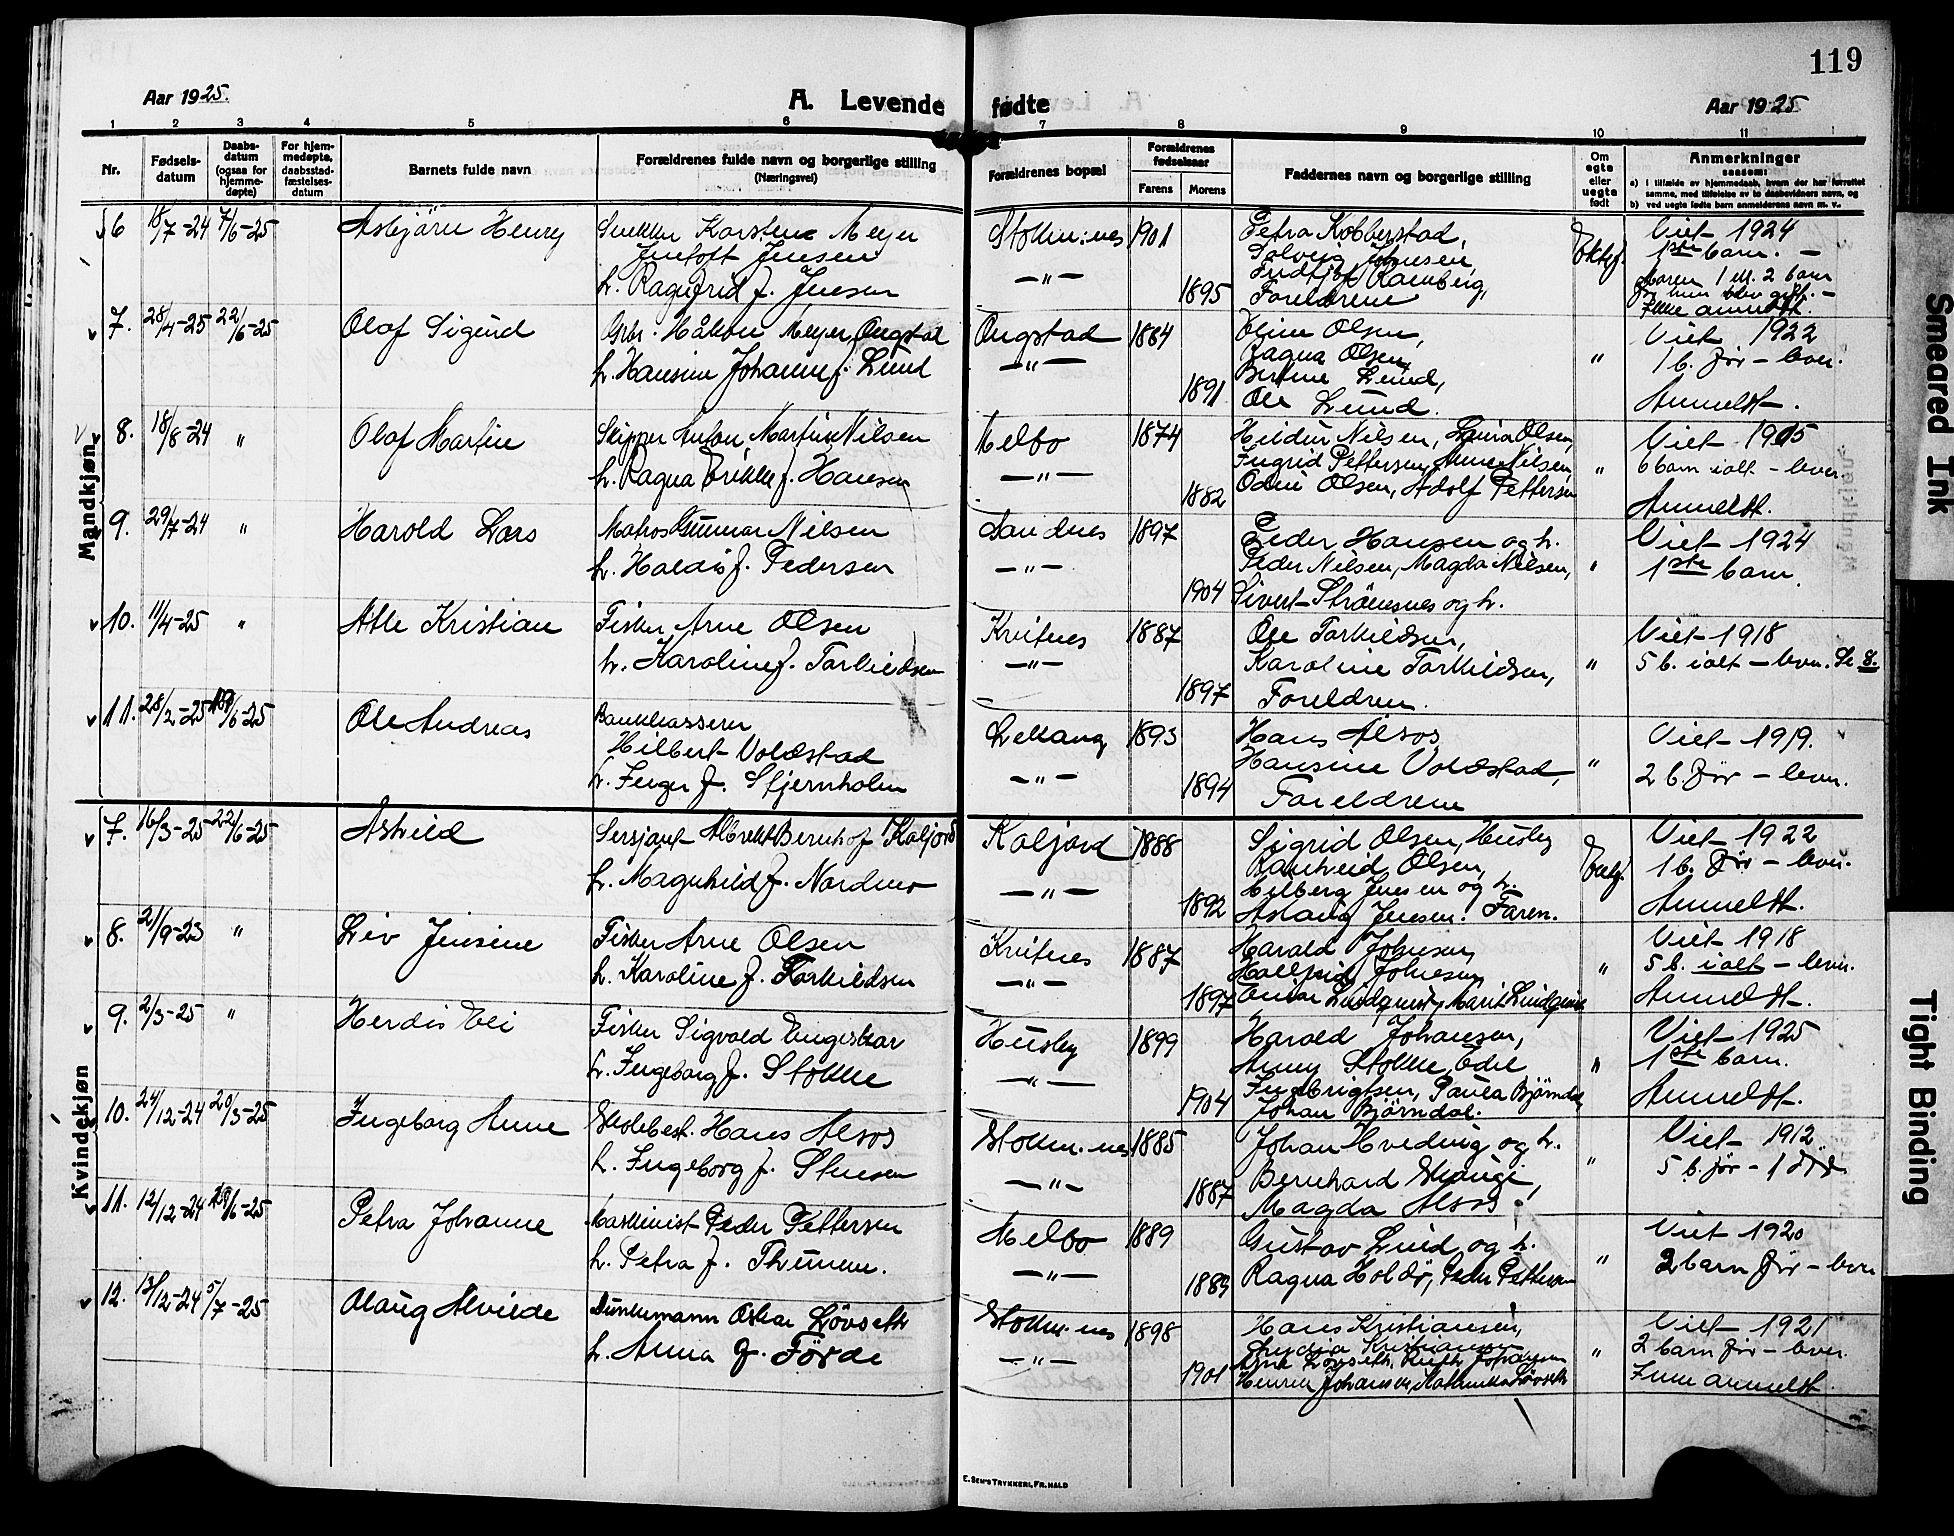 119
Aar 1925.
A. Levende fødte
Aar 1925
1 2 3 4 5 6 7 8 9 10 11
Nr.
Fødsels-
datum
Daabs-
datum
(ogsaa for
hjemme-
døpte)
For hjem-
medøpte,
daabsstad-
fæstelses-
datum
Barnets fulde navn
Forældrenes fulde navn og borgerlige stilling
(Næringsvei)
Forældrenes bopæl
Forældrenes
fødselsaar
Farens
Morens
Faddernes navn og borgerlige stilling
Om
egte
eller
uegte
født
Anmerkninger
saasom:
a) i tilfælde av hjemmedaab, hvem der har forrettet
samme, med tilføielse av to daabsvidners navn, og
b) ved uegte fødte barn anmelderens navn m. v.
Mandkjøn
6 18/7-24 7/6-25 Asbjørn Henry
Snekker Karsten Meyer
Jentoft Jensen
h. Ragnfrid f. Jensen
Stokm.nes 1901
—"— 1895
Petra Kobberstad,
Solveig Johnsen,
Fridtjof Ramberg,
Foreldrene
Ektef.
Viet 1924
1ste barn. —
Faren 1 ell. 2 barn
før hun blev gift. —
Ikke anmeldt.
7. 28/4-25 22/6-25 Olaf Sigurd
Grbr. Håkon Meyer Ongstad
h. Hansine Johanne f. Lund
Ongstad 1884
—"— 1891
Eline Olsen,
Ragna Olsen,
Bertine Lund,
Ole Lund.
"
Viet 1922
1 b. før – lever.
Anmeldt.
8. 18/8-24 " Olaf Martin
Skipper Anton Martin Nilsen
h. Ragna Erikke f. Hansen
Melbo 1874
—"— 1882
Hildur Nilsen, Laura Olsen,
Ingrid Pettersen, Anne Nilsen,
Odin Olsen, Adolf Pettersen
"
Viet 1905
6 barn ialt – lever.
Anmeldt.
9. 29/7-24 " Harold Lars
Matros Gunnar Nilsen
h. Haldis f. Pedersen
Sandnes 1897
—"— 1904
Peder Hansen og h.
Peder Nilsen, Magda Nilsen,
Sivert Strømsnes og h.
"
Viet 1924
1ste barn.
10. 11/4-25 " Atle Kristian
Fisker Arne Olsen
h. Karoline f. Torkildsen
Kvitnes 1887
—"— 1897
Ole Torkildsen,
Karoline Torkildsen,
Foreldrene.
"
Viet 1918
5 b. ialt – lever. Se 8.
11. 28/2-25 /6-25 Ole Andreas
Bankkasserer
Hilbert Voldstad
h. Inger f. Stjernholm
Lekang 1893
—"— 1894
Hans Alsos
Hansine Voldstad,
Foreldrene
"
Viet 1919.
2 b. før – lever.
Kvindekjøn
7. 16/3-25 22/6-25 Askild
Sersjant Albrekt Bernhof Kaljord
h. Magnhild f. Nordmo
Kaljord 1888
—"— 1892
Sigrid Olsen, Husby
Ranheid Olsen,
Hilberg Jensen og h.
Aslaug Jensen. Faren.
Ektef.
Viet 1922
1 b. før – lever.
Anmeldt.
8. 21/9-23 " Liv Jensine
Fisker Arne Olsen
h. Karoline f. Torkildsen
Kvitnes 1887
—"— 1897
Harald Johnsen,
Hallfrid Johnsen,
Einar Lindquist, Marit Lindquist
"
Viet 1918
5 b. ialt – lever.
Anmeldt.
9. 2/3-25 " Herdis Eli
Fisker Sigvald Engeskar
h. Ingeborg f. Stokke
Husby 1899
—"— 1904
Harald Johansen,
Anny Stokke, Edel
Ingebrigtsen, Paula Bjørndal,
Johan Bjørndal.
"
Viet 1925
1ste barn.
Anmeldt.
10. 24/12-24 20/3-25 Ingeborg Anne
Skolebest. Hans Alsos
h. Ingeborg f. Stensen
Stokm.nes 1885
—"— 1887
Johan Hveding og h.
Bernhard Skauge,
Magda Alsos.
"
Viet 1912
5 b. før – 1 død
11. 12/12-24 /6-25 Petra Johanne
Maskinist Peder Pettersen
h. Petra f. Thunem.
Melbo 1889
—"— 1889
Gustav Lind og h.
Ragna Holdø, Peder Pettersen
"
Viet 1920
2 barn før – lever
12. 13/12-24 5/7-25 Olaug Alvilde
Bunkermann Oskar Løvseth
h. Anna f. Førde
Stokm.nes 1898
—"— 1901
Hans Kristiansen,
Lydia Kristiansen
Arne Løvseth, Ruth Johansen
Henrik Johansen, Løvseth
"
Viet 1921
2 barn før – lever.
Ikke anmeldt.
E. SEM'S TRYKKERI, FR.HALD
Smeared Ink
Tight Binding